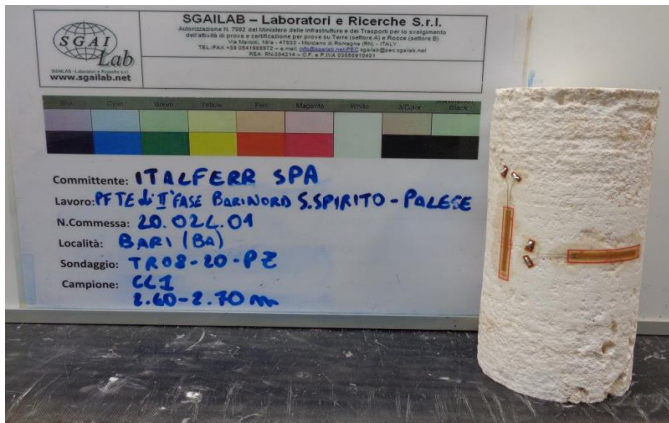 SGAI
Lab
SGAILAB - Laboratori e Ricerche S.r.l.
www.sgailab.net
SGAILAB – Laboratori e Ricerche S.r.l.
Autorizzazione N. 7982 del Ministero delle Infrastrutture e dei Trasporti per lo svolgimento
dell'attività di prova e certificazione per prove su Terre (settore A) e Rocce (settore B)
Blue Cyan Green Yellow Red Magenta White 3/Color Black
Committente: ITALFERR SPA
Lavoro: PFTE di II° FASE BARI NORD S.SPIRITO - PALESE
N.Commessa: 20.022.01
Località: BARI (BA)
Sondaggio: TR08-20-PZ
Campione: CL1
2.60-2.70 m